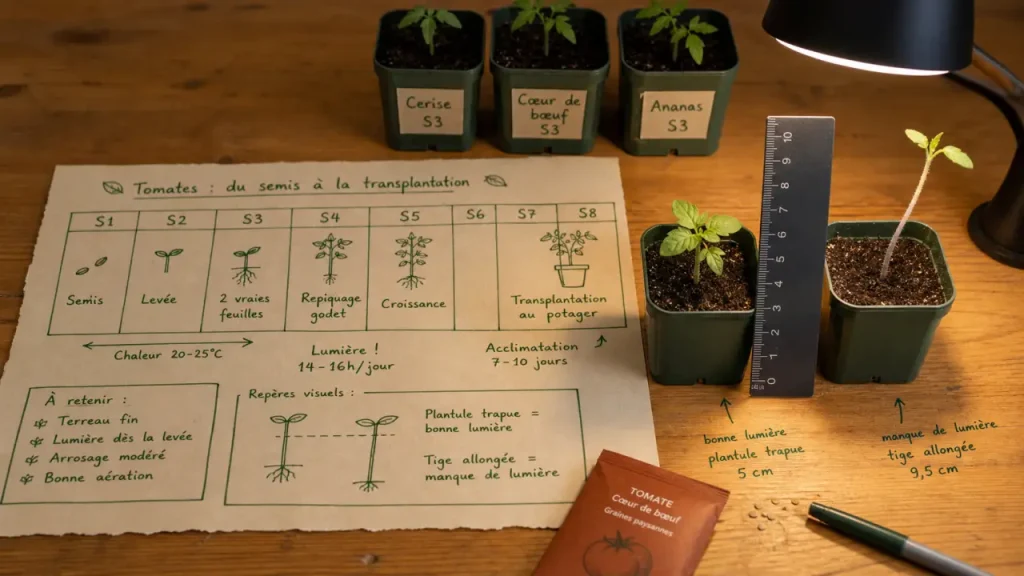 Cerise
S3
Cœur de
bœuf
S3
Ananas
S3
Tomates : du semis à la transplantation
S1 S2 S3 S4 S5 S6 S7 S8
Semis
Levée
2 vraies
feuilles
Repiquage
godet
Croissance
Transplantation
au potager
Chaleur 20-25°C
Lumière !
14-16h/jour
Acclimatation
7-10 jours
À retenir :
Terreau fin
Lumière dès la levée
Arrosage modéré
Bonne aération
Repères visuels :
Plantule trapue =
bonne lumière
Tige allongée =
manque de lumière
10
9
8
7
6
5
4
3
2
1
0
bonne lumière
plantule trapue
5 cm
manque de lumière
tige allongée
9,5 cm
TOMATE
Cœur de bœuf
Graines paysannes